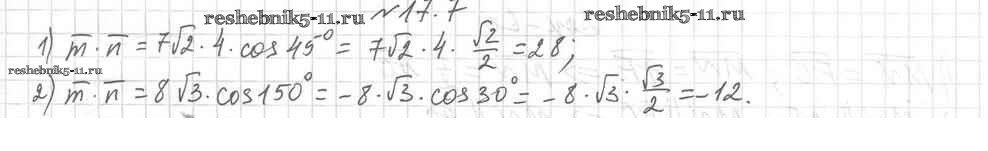 reshebnik5-11.ru №17.7 reshebnik5-11.ru
1) m̅ · n̅ = 7√2 · 4 · cos 45° = 7√2 · 4 · √2/2 = 28;
reshebnik5-11.ru
2) m̅ · n̅ = 8√3 · cos 150° = -8 · √3 · cos 30° = -8 · √3 · √3/2 = -12.